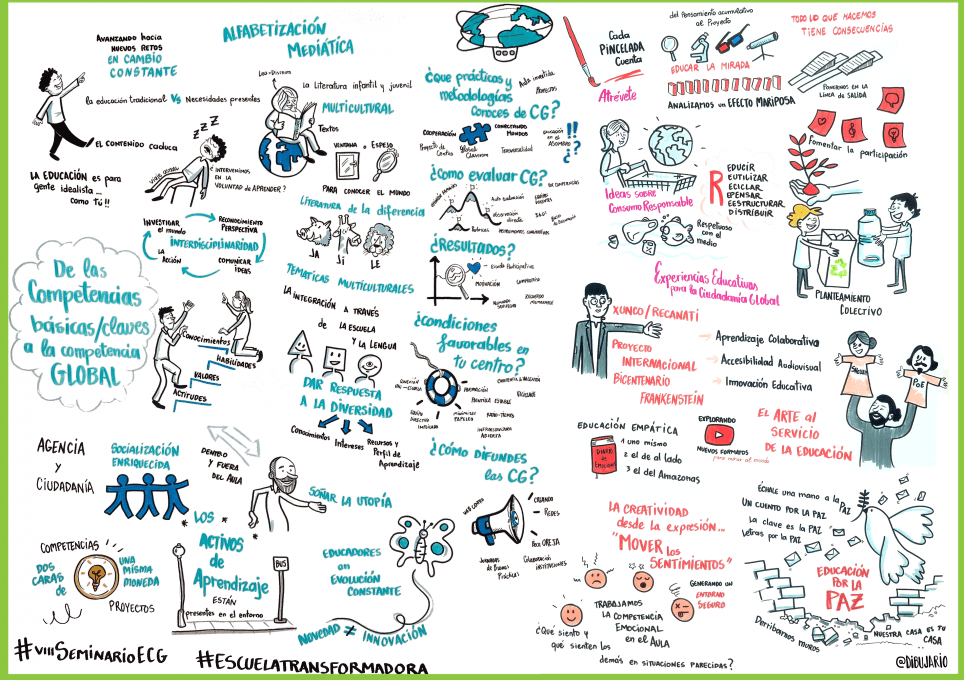 AVANZANDO hacia
NUEVOS RETOS
EN CAMBIO
CONSTANTE
la educación tradicional VS Necesidades presentes
EL CONTENIDO CADUCA
LA EDUCACIÓN es para
gente idealista...
como tú!!
ZZZ
¿INTERVENIMOS
EN LA
VOLUNTAD DE APRENDER?
INVESTIGAR
el mundo
RECONOCIMIENTO
PERSPECTIVA
INTERDISCIPLINARIDAD
LA
ACCIÓN
COMUNICAR
IDEAS
De las
Competencias
básicas/claves
a la competencia
GLOBAL
Conocimientos
HABILIDADES
VALORES
ACTITUDES
AGENCIA
Y
CIUDADANÍA
SOCIALIZACIÓN
ENRIQUECIDA
DENTRO
Y FUERA
DEL AULA
COMPETENCIAS
DOS
CARAS
de
UNA
MISMA
MONEDA
PROYECTOS
* LOS *
ACTIVOS
de
Aprendizaje
ESTÁN
presentes en el entorno
BUS
#VIIISEMINARIOECG
#ESCUELATRANSFORMADORA
ALFABETIZACIÓN
MEDIÁTICA
La Literatura infantil y juvenil
MULTICULTURAL
Textos
VENTANA o ESPEJO
PARA CONOCER EL MUNDO
LITERATURA de la diferencia
JA
JI
LE
TEMÁTICAS MULTICULTURALES
LA INTEGRACIÓN A TRAVÉS
DE LA ESCUELA
Y LA LENGUA
DAR RESPUESTA
A LA DIVERSIDAD
Conocimientos
Intereses
Recursos y
Perfil de
Aprendizaje
SOÑAR LA UTOPÍA
EDUCADORES
en
EVOLUCIÓN
CONSTANTE
NOVEDAD ≠ INNOVACIÓN
¿Qué prácticas y
metodologías
conoces de CG?
Aula invertida
COOPERACIÓN
CONECTANDO
MUNDOS
Global
Classroom
EDUCACIÓN
EN EL
ASOMBRO
!!
¿?
¿Como evaluar CG?
Auto evaluación
Observación
directa
360°
Rúbricas
¿RESULTADOS?
MOTIVACIÓN
¿condiciones
favorables en
tu centro?
FORMACIÓN
¿Cómo difundes
las CG?
CREANDO
REDES
Boca OREJA
Colaboración
instituciones
Cada
PINCELADA
Cuenta
Atrévete
del Pensamiento acumulativo
al Proyecto
EDUCAR LA MIRADA
ANALIZAMOS un EFECTO MARIPOSA
TODO LO QUE HACEMOS
TIENE CONSECUENCIAS
PONERNOS EN LA
LÍNEA DE SALIDA
Fomentar la participación
Ideas sobre
Consumo Responsable
R
EDUCIR
EUTILIZAR
ECICLAR
EPENSAR
EESTRUCTURAR
DISTRIBUIR
Respetuoso
con el
medio
PLANTEAMIENTO
COLECTIVO
Experiencias Educativas
para la Ciudadanía Global
XUNCO/RECANATI
PROYECTO
INTERNACIONAL
BICENTENARIO
FRANKENSTEIN
Aprendizaje Colaborativa
Accesibilidad Audiovisual
Innovación Educativa
SHELLEY
POE
EDUCACIÓN EMPÁTICA
DIARIO
de
EMOCIONES
1 uno mismo
2 el de al lado
3 el del Amazonas
EXPLORANDO
NUEVOS FORMATOS
para narrar el mundo
EL ARTE al
SERVICIO
DE LA EDUCACIÓN
LA CREATIVIDAD
desde la EXPRESIÓN...
"MOVER los
SENTIMIENTOS"
GENERANDO UN
ENTORNO
SEGURO
TRABAJAMOS
LA COMPETENCIA
EMOCIONAL
en el AULA
¿Qué siento y
qué sienten los
demás en situaciones parecidas?
ÉCHALE una mano a la PAZ
UN CUENTO POR LA PAZ
La clave es la PAZ
Letras por la PAZ
EDUCACIÓN
POR LA
PAZ
Derribamos
muros
NUESTRA CASA ES TU
CASA
@DIBUJARIO